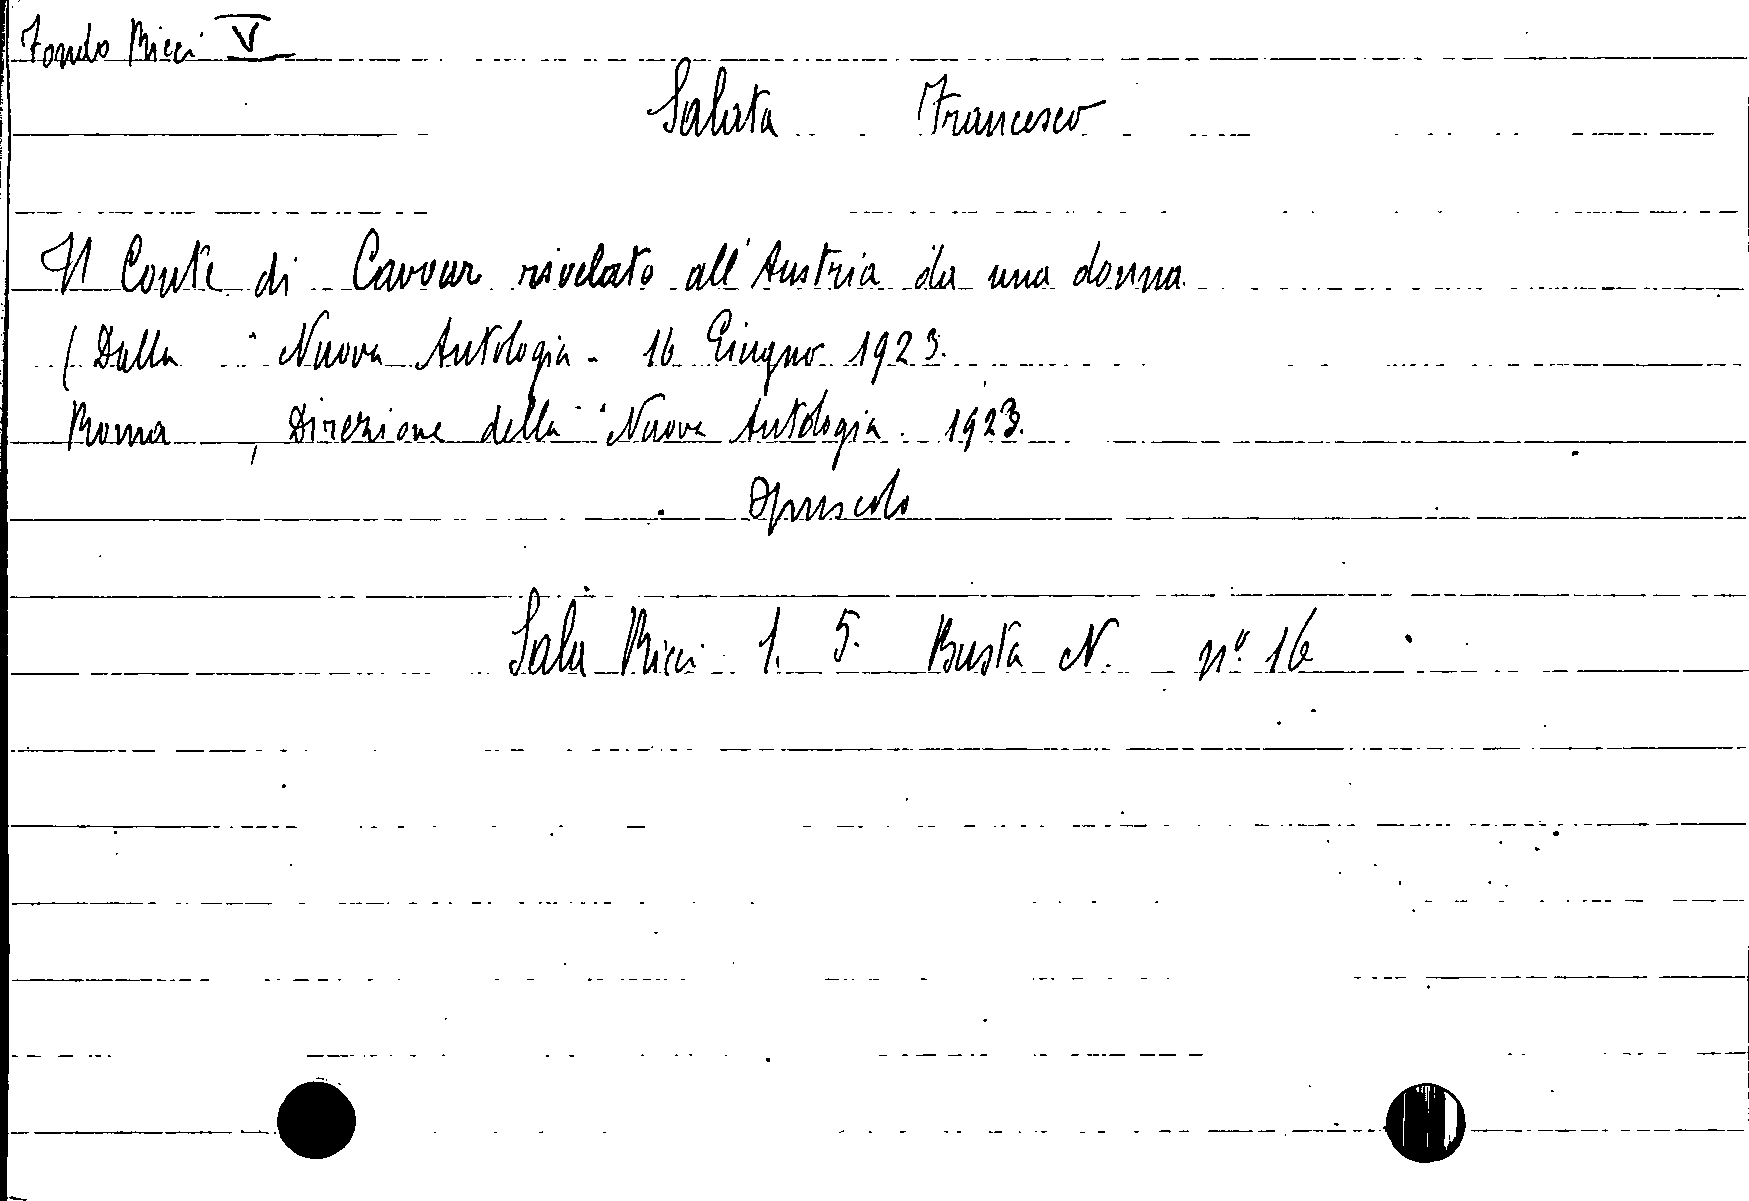 Fondo Ricci V
Salata Francesco
Il Conte di Cavour rivelato all'Austria da una donna
( Dalla " Nuova Antologia - 16 Giugno 1923.
Roma , Direzione della "Nuova Antologia. 1923.
Opuscolo
Sala Ricci 1. 5. Busta N. nº 16